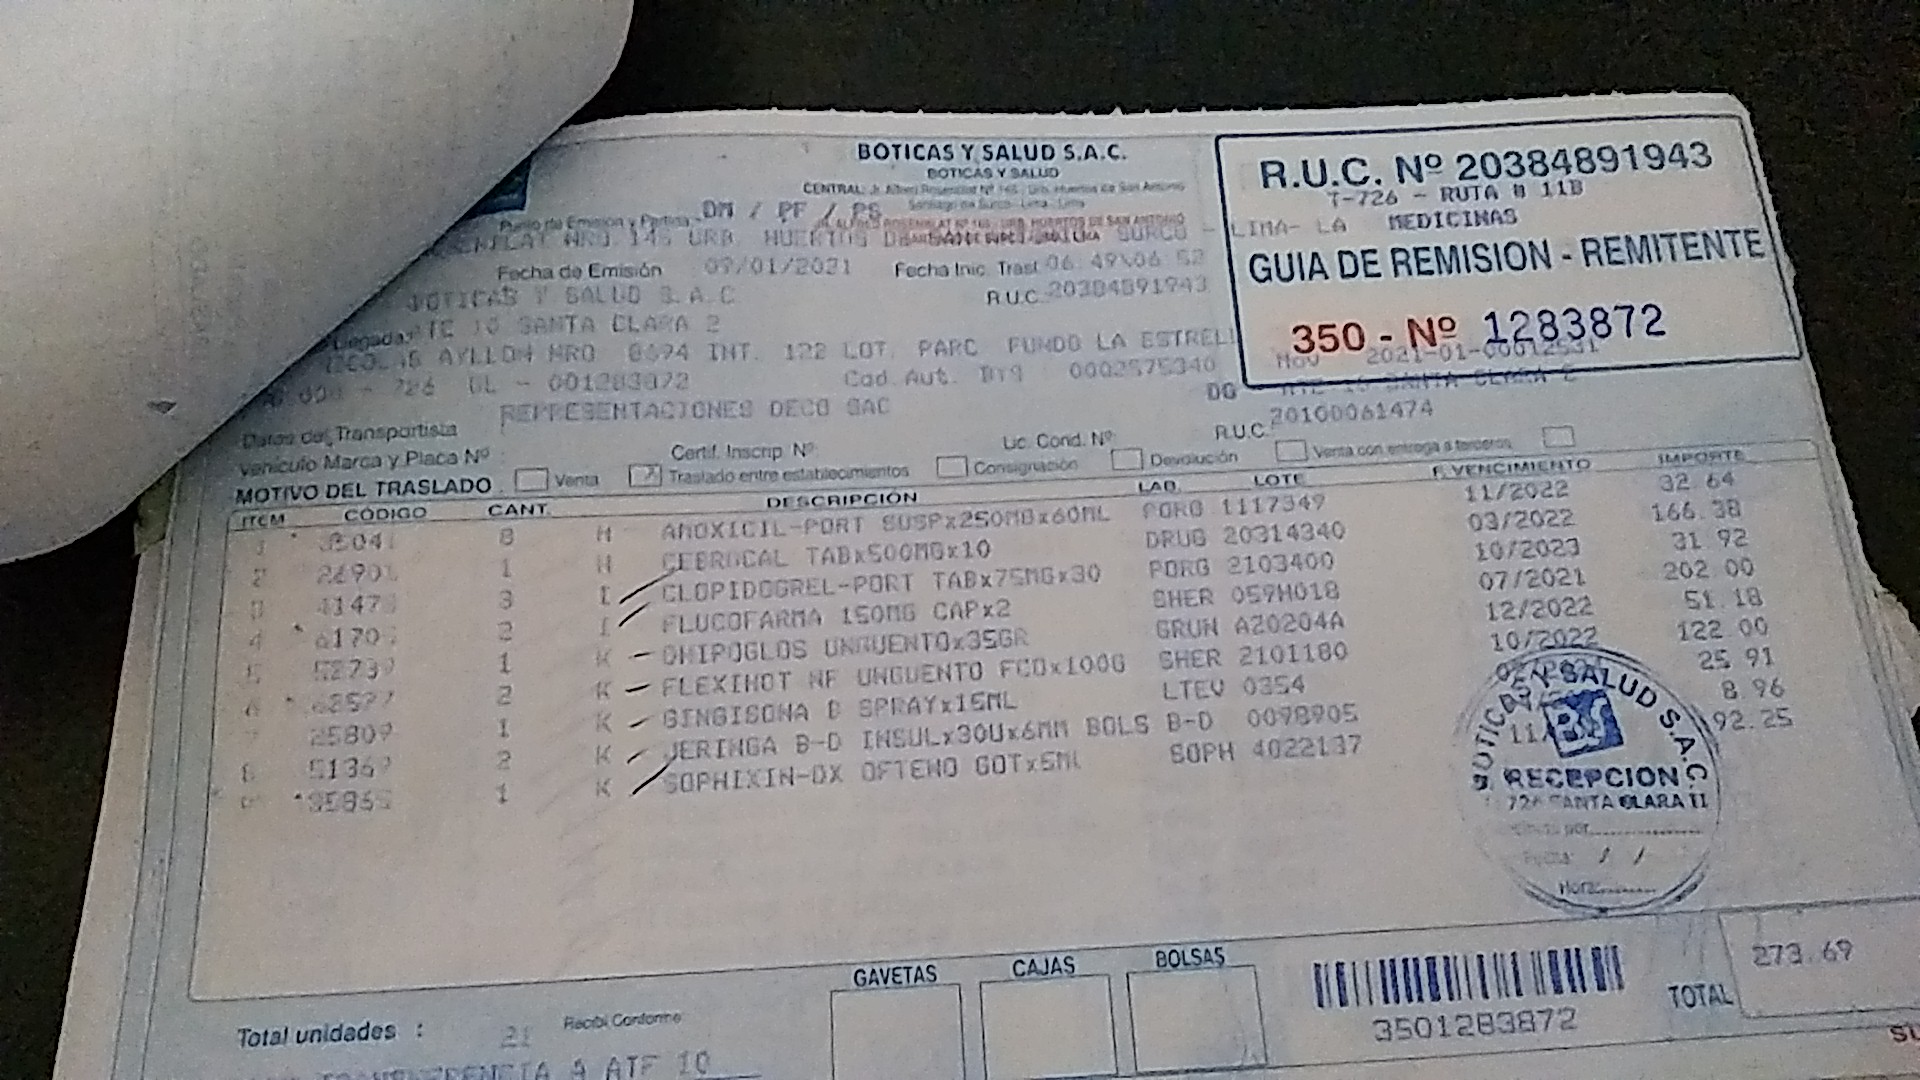 BOTICAS Y SALUD S.A.C.
BOTICAS Y SALUD
CENTRAL: Jr. Alfred Rosenblat Nº 145 - Urb. Huertos de San Antonio
Santiago de Surco - Lima - Lima
R.U.C. Nº 20384891943
T-726 - RUTA # 11B
MEDICINAS
GUIA DE REMISION - REMITENTE
350 - Nº 1283872
Punto de Emisión y Partida DM / PF / PS
NRO. 145 URB. HUERTOS SURCO - LIMA- LA
Fecha de Emisión 09/01/2021 Fecha Inic. Trasl. 06:49\06:52
BOTICAS Y SALUD S.A.C. R.U.C. 20384891943
ATE 10 SANTA CLARA 2
AYLLON NRO. 8694 INT. 122 LOT. PARC FUNDO LA ESTRELL
Mov 2021-01-00012531
726 GL - 001283872 Cod. Aut. 0002575340
REPRESENTACIONES DECO SAC 20100061474
Datos del Transportista
Vehículo Marca y Placa Nº Certif. Inscrip. Nº Lic. Cond. Nº R.U.C.
MOTIVO DEL TRASLADO Venta Traslado entre establecimientos Consignación Devolución Venta con entrega a terceros
ITEM CÓDIGO CANT. DESCRIPCIÓN LAB. LOTE F. VENCIMIENTO IMPORTE
1 8 H AMOXICIL-PORT SUSPx250MGx60ML PORG 1117349 11/2022 32.64
2 1 H CEBROCAL TABx500MGx10 DRUG 20314340 03/2022 166.38
3 3 I CLOPIDOGREL-PORT TABx75MGx30 PORG 2103400 10/2023 31.92
4 2 I FLUCOFARMA 150MG CAPx2 SHER 059H018 07/2021 202.00
5 52739 1 K HIPOGLOS UNGUENTOx35GR GRUN A20204A 12/2022 51.18
6 62527 2 K FLEXIHOT NF UNGUENTO FCOx100G SHER 2101180 10/2022 122.00
7 25809 1 K GINGISONA B SPRAYx15ML LTEV 0354 25.91
8 51369 2 K JERINGA B-D INSULx30Ux6MM BOLS B-D 0098905 8.96
1 K SOPHIXIN-DX OFTENO GOTx5ML SOPH 4022137 92.25
BOTICAS Y SALUD S.A.C.
BS
RECEPCION
726 SANTA CLARA II
Fecha: / /
Hora:
GAVETAS CAJAS BOLSAS
3501283872
TOTAL 273.69
Total unidades : 21 Recibí Conforme
TRANSFERENCIA A ATE 10